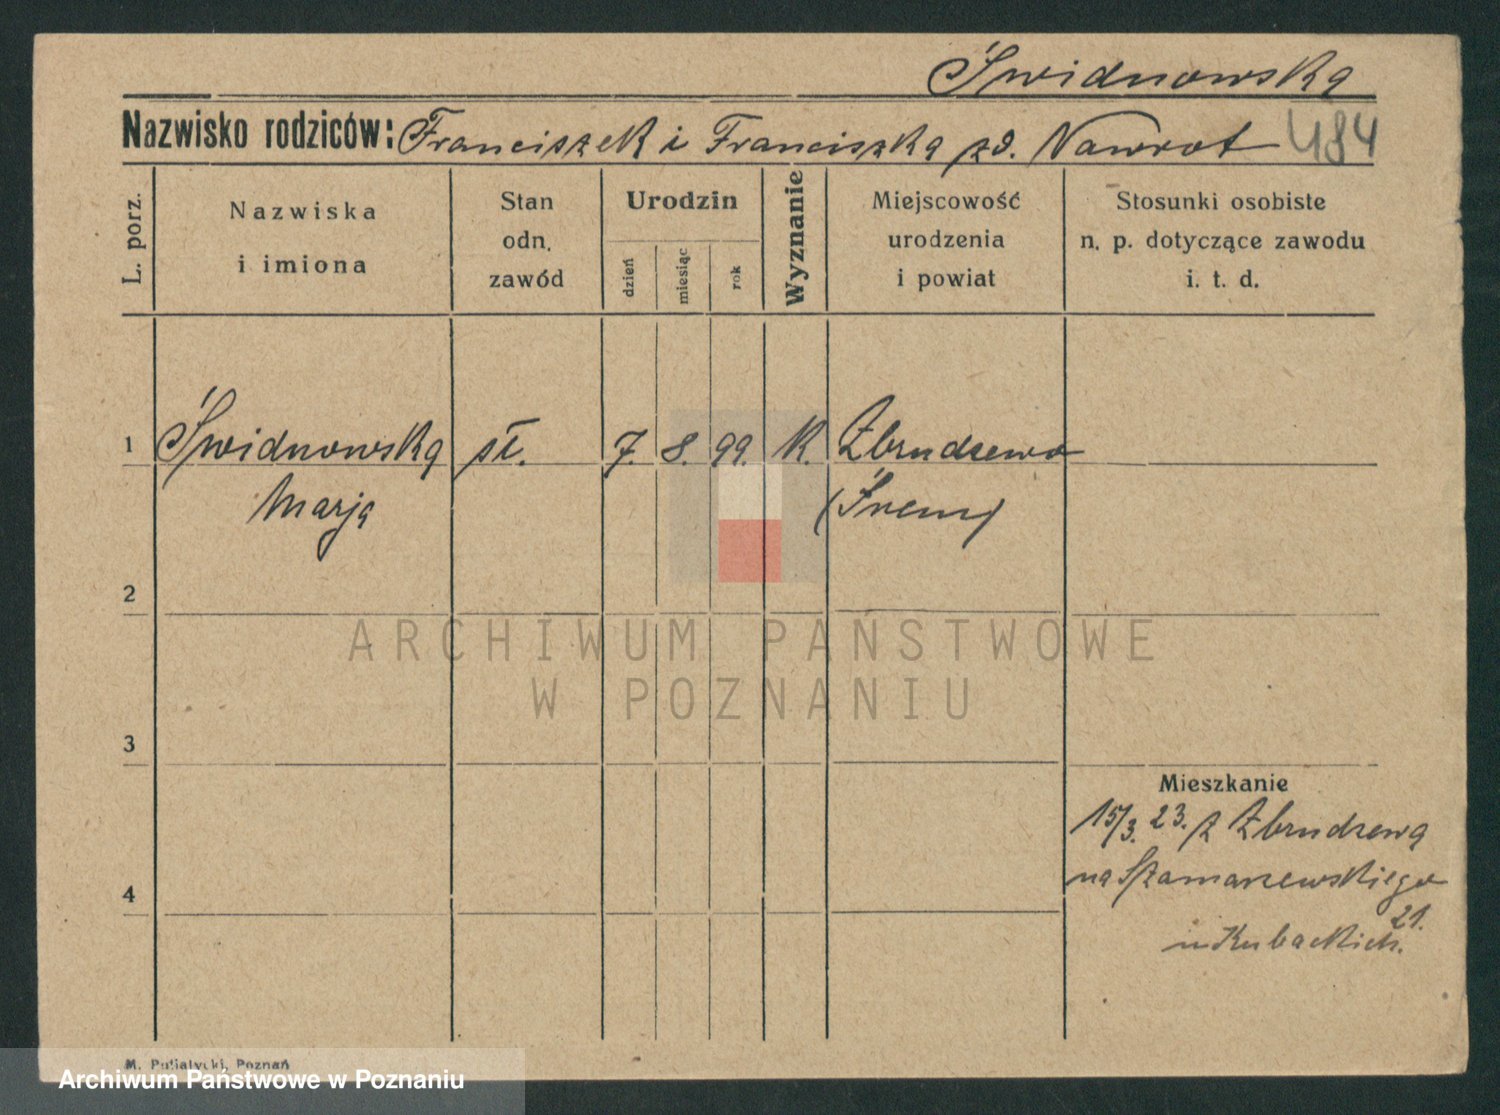 Świdnowska
Nazwisko rodziców: Franciszek i Franciszka zd. Nawrot 484
L. porz.
Nazwiska
i imiona
Stan
odn.
zawód
Urodzin
dzień
miesiąc
rok
Wyznanie
Miejscowość
urodzenia
i powiat
Stosunki osobiste
n. p. dotyczące zawodu
i. t. d.
1 Świdnowska sł. 7. 8. 99. K. Zbrudzewo
Marja (Śrem)
2
ARCHIWUM PAŃSTWOWE
W POZNANIU
3
Mieszkanie
15/3. 23. z Zbrudzewa
4 na Szamarzewskiego
21.
u Kubackich.
M. Putiatycki, Poznań
Archiwum Państwowe w Poznaniu